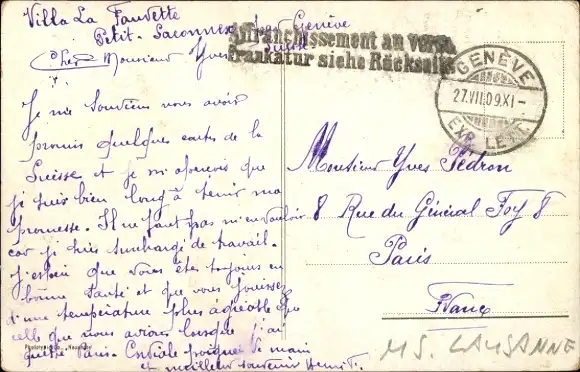 Villa La Fauvette
Petit-Saconnex près Genève
Suisse
Cher Monsieur Yves
Je me souviens vous avoir
promis quelques cartes de la
Suisse et je m'aperçois que
je suis bien long à tenir ma
promesse. Il ne faut pas m'en vouloir
car je suis surchargé de travail.
J'espère que vous êtes toujours en
bonne santé et que vous jouissez
d'une température plus agréable que
celle que nous avions lorsque j'ai
quitté Paris. Cordiale poignée de main
et meilleur souvenir Henri
Affranchissement au verso
Frankatur siehe Rückseite
GENÈVE
27.VII.09.XI-
EXP. LETT.
Monsieur Yves Pédron
8 Rue du Général Foy 8
Paris
France
MS. LAUSANNE